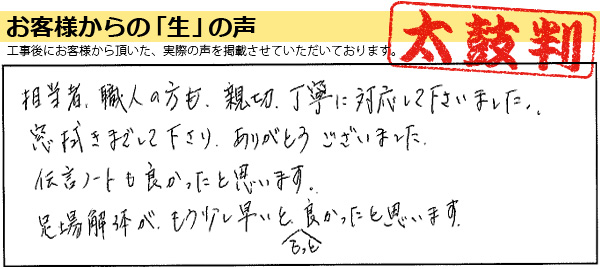 お客様からの「生」の声
太鼓判
工事後にお客様から頂いた、実際の声を掲載させていただいております。
担当者、職人の方も、親切、丁寧に対応して下さいました。
窓拭きまでして下さり、ありがとうございました。
伝言ノートも良かったと思います。
足場解体が、もう少し早いと、もっと良かったと思います。